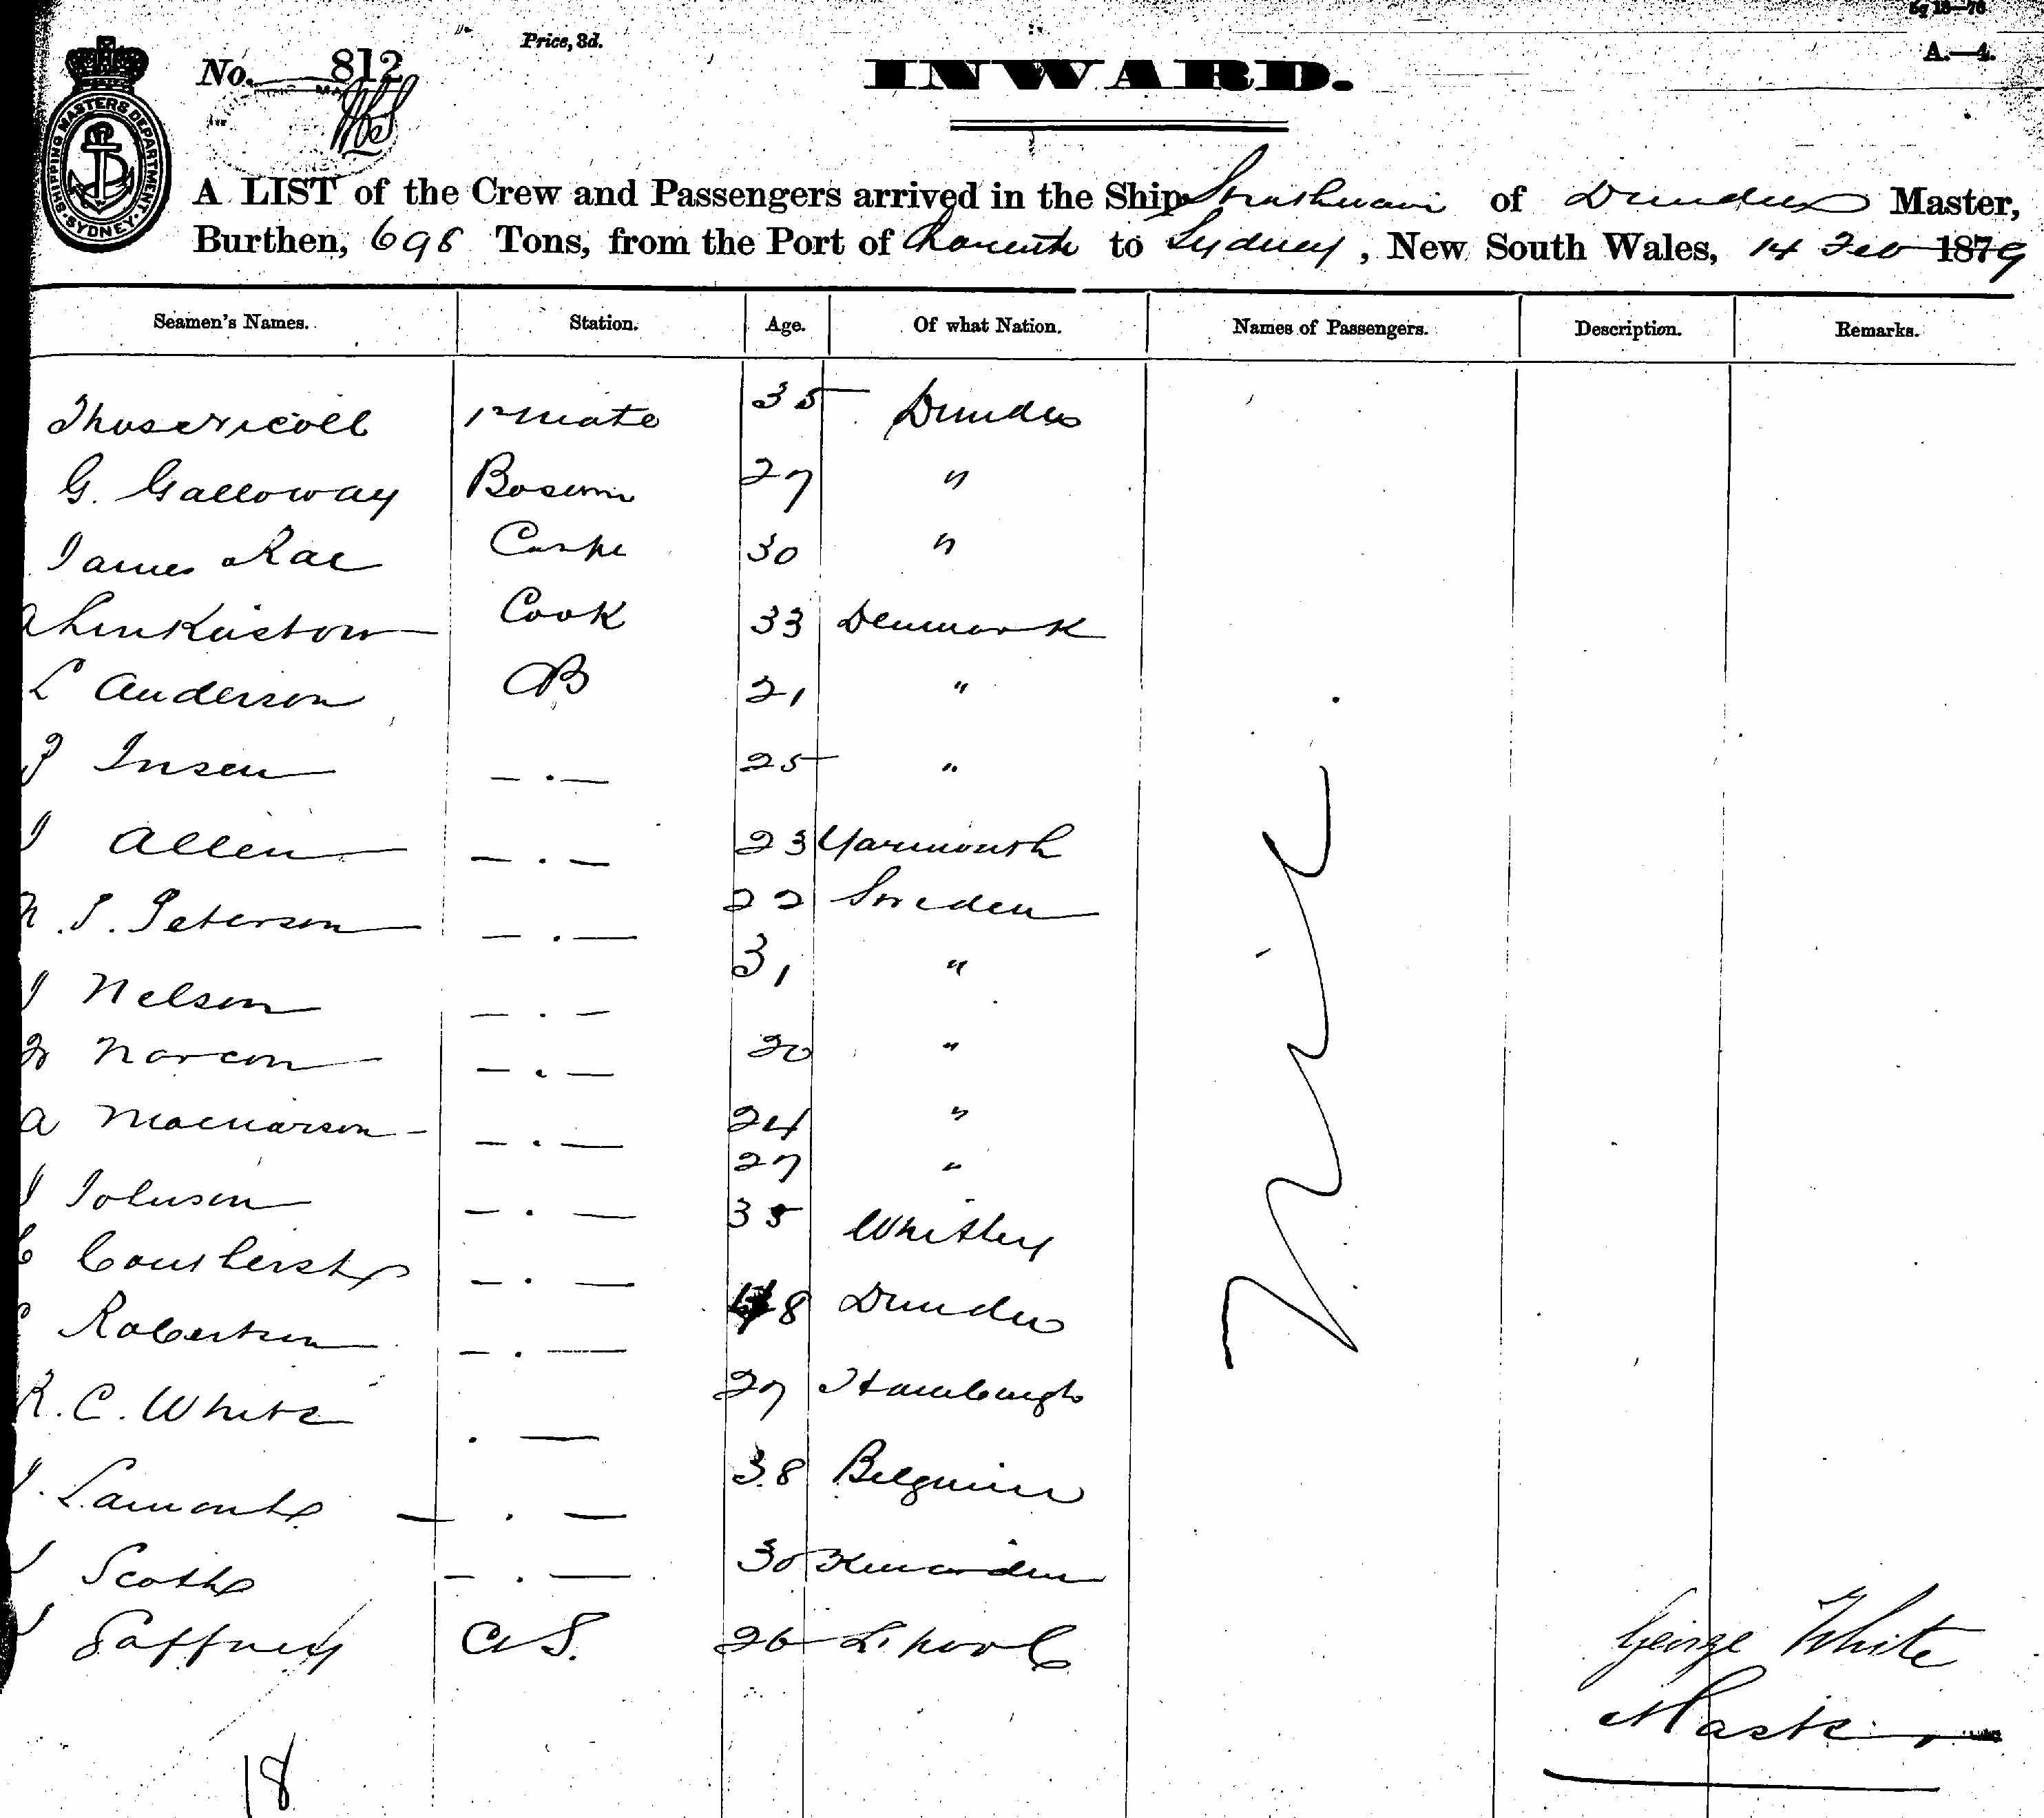 6g 18—78
Price, 3d.
A.—4.
No. 812
INWARD.
SHIPPING MASTERS DEPARTMENT. SYDNEY.
A LIST of the Crew and Passengers arrived in the Ship of Dundee Master,
Burthen, 698 Tons, from the Port of to Sydney, New South Wales, 14 Feb 1879
Seamen's Names. Station. Age. Of what Nation. Names of Passengers. Description. Remarks.
Thos Nicoll 1st Mate 35 Dundee
G. Galloway Bosun 27 "
James Rae Carpe 30 "
Cook 33 Denmark
L Anderson AB 21 "
Insen — . — 25 "
J Allen — . — 23 Yarmouth
N. P. Peterson — . — 22 Sweden
J Nelson — . — 31 "
Norcon — . — 20 "
A — . — 24 "
J Johnson — . — 27 "
— . — 35 Whitby
Robertson — . — 48 Dundee
R. C. White . — 27 Hamburgh
J. Lamont — . — 38 Belguim
J Scott — . — 30
J Gaffney OS. 26 L'pool
Nil
George White
Master
18